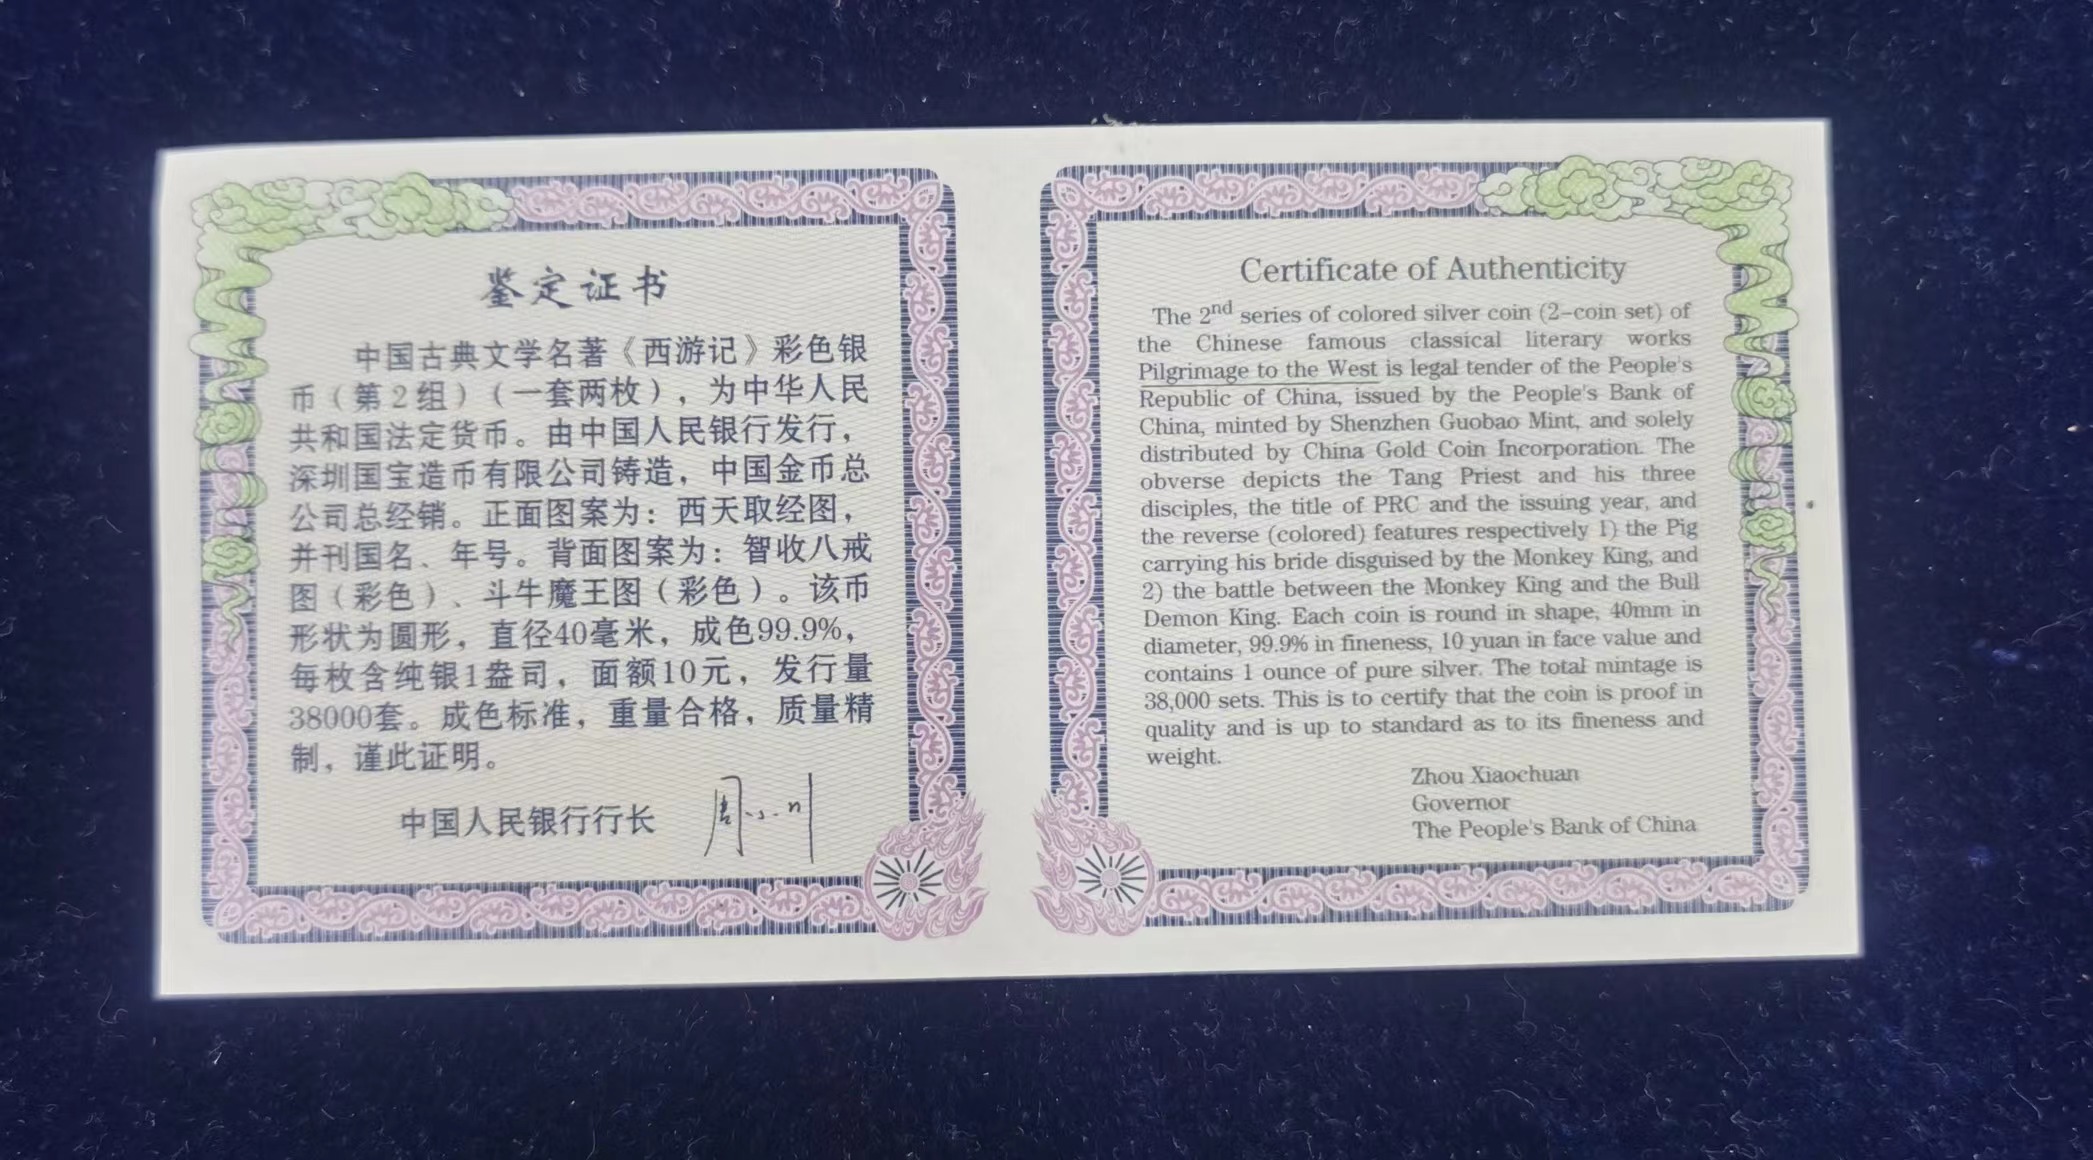 鉴定证书
中国古典文学名著《西游记》彩色银
币（第2组）（一套两枚），为中华人民
共和国法定货币。由中国人民银行发行，
深圳国宝造币有限公司铸造，中国金币总
公司总经销。正面图案为：西天取经图，
并刊国名、年号。背面图案为：智收八戒
图（彩色）、斗牛魔王图（彩色）。该币
形状为圆形，直径40毫米，成色99.9%，
每枚含纯银1盎司，面额10元，发行量
38000套。成色标准，重量合格，质量精
制，谨此证明。
中国人民银行行长 周小川
Certificate of Authenticity
The 2nd series of colored silver coin (2-coin set) of
the Chinese famous classical literary works
Pilgrimage to the West is legal tender of the People's
Republic of China, issued by the People's Bank of
China, minted by Shenzhen Guobao Mint, and solely
distributed by China Gold Coin Incorporation. The
obverse depicts the Tang Priest and his three
disciples, the title of PRC and the issuing year, and
the reverse (colored) features respectively 1) the Pig
carrying his bride disguised by the Monkey King, and
2) the battle between the Monkey King and the Bull
Demon King. Each coin is round in shape, 40mm in
diameter, 99.9% in fineness, 10 yuan in face value and
contains 1 ounce of pure silver. The total mintage is
38,000 sets. This is to certify that the coin is proof in
quality and is up to standard as to its fineness and
weight.
Zhou Xiaochuan
Governor
The People's Bank of China